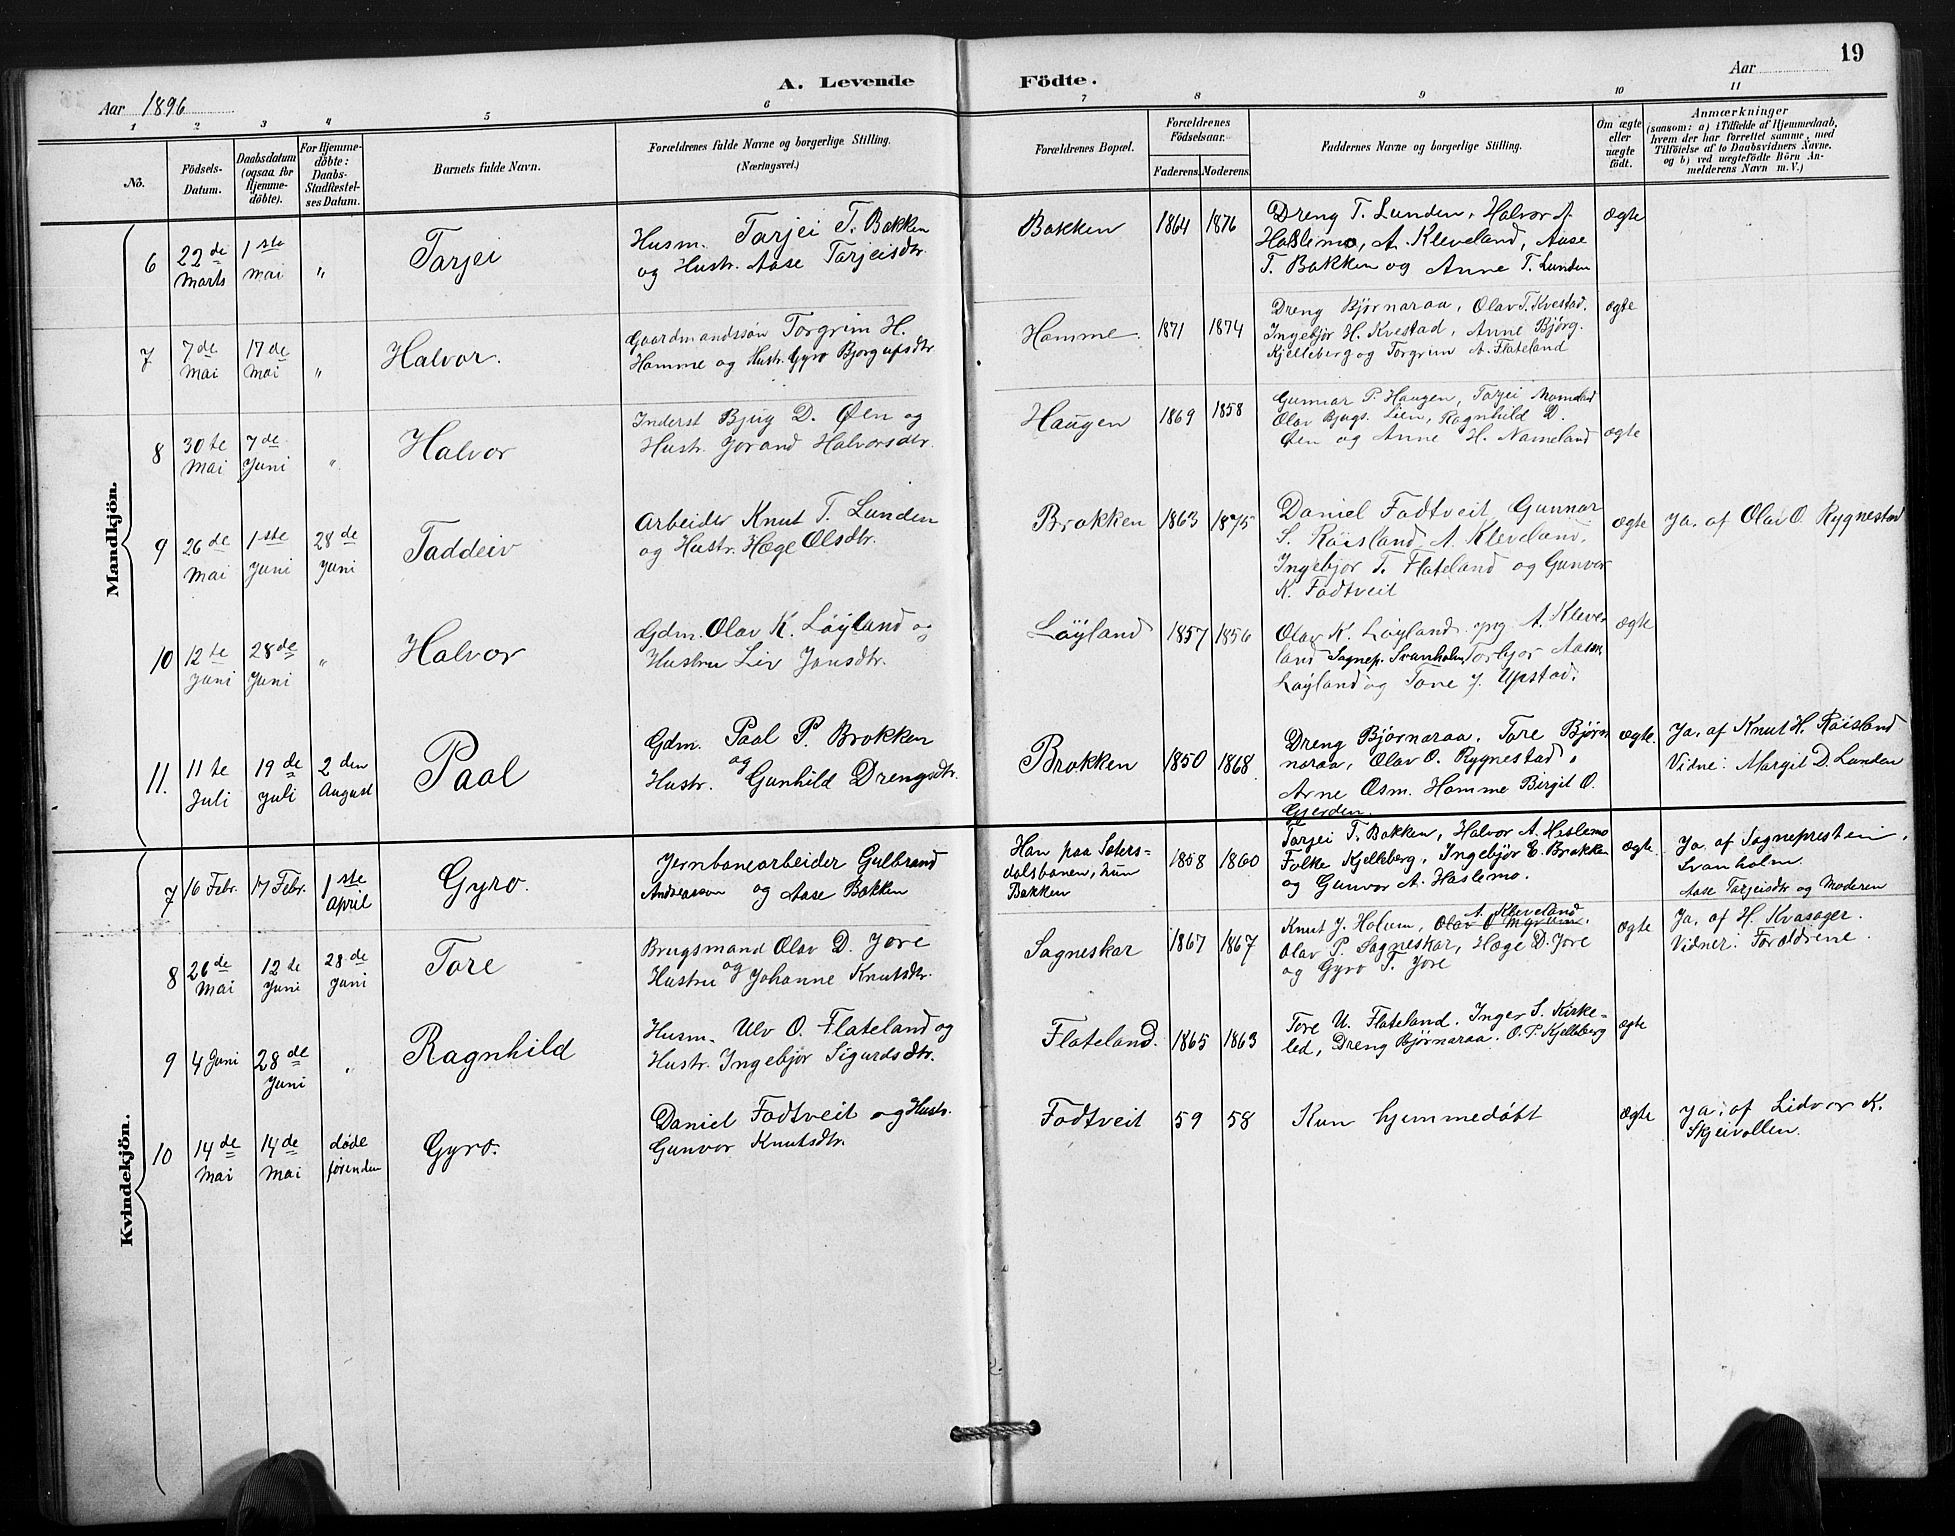 19
A. Levende Födte.
Aar 1896
Aar
1 2 3 4 5 6 7 8 9 10 11
No.
Födsels-
Datum.
Daabsdatum
(ogsaa for
Hjemme-
døbte).
For Hjemme-
döbte:
Daabs-
Stadfæstel-
ses Datum.
Barnets fulde Navn.
Forældrenes fulde Navne og borgerlige Stilling.
(Næringsvei.)
Forældrenes Bopæl.
Forældrenes
Födselsaar.
Faderens. Moderens.
Faddernes Navne og borgerlige Stilling.
Om ægte
eller
uægte
født.
Anmærkninger
(saasom: a) i Tilfælde af Hjemmedaab,
hvem der har forrettet samme, med
Tilföielse af to Daabsvidners Navne.
og b) ved uægtefødte Börn An-
melderens Navn m. V.)
Mandkjön.
6
22de
Marts
1ste
Mai
"
Tarjei
Husm. Tarjei T. Bakken
og Hustr. Aase Tarjeisdtr.
Bakken
1864 1876
Dreng T. Lunden, Halvor A.
Haslemo, A. Kleveland, Aase
T. Bakken og Anne T. Lunden
ægte
7
7de
Mai
17de
Mai
"
Halvor.
Gaardmandssøn Torgrim H.
Homme og Hustr. Gyro Bjorgufsdtr
Homme.
1871 1874
Dreng Bjørnaraa, Olav T. Kvestad,
Ingebjør H. Kvestad, Anne Bjørg.
Kjelleberg og Torgrim A. Flateland
ægte
8
30te
Mai
7de
Juni
"
Halvor
Inderst Bjug D. Øen og
Hustr. Jorand Halvorsdtr.
Haugen
1869 1858
Gunnar P. Haugen, Tarjei
Olav Bjugs. Lien, Ragnhild D.
Øen og Anne H. Nomeland
ægte
9
26de
Mai
1ste
Juni
28de
Juni
Taddeiv
Arbeider Knut T. Lunden
og Hustr. Hæge Olsdtr.
Brokken
1863 1875
Daniel Fodtveit, Gunnar
S. Røisland, A. Kleveland,
Ingebjor T. Flateland og Gunvor
K. Fodtveit
ægte
Ja, af Olav O. Rygnestad
10
12te
Juni
28de
Juni
"
Halvor
Gdm. Olav K. Løyland og
Hustru Liv Jonsdtr.
Løyland
1857 1856
Olav K. Løyland yng. A. Kleve
land Sognep. Svanholm, Torbjor Aasm.
Løyland og Tone J. Upstad.
ægte
11.
11te
Juli
19de
Juli
2den
August
Paal
Gdm. Paal P. Brokken
og
Hustr. Gunhild Drengsdtr.
Brokken
1850 1868
Dreng Bjørnaraa, Tore Bjørn
naraa, Olav O. Rygnestad,
Arne Osm. Homme Birgit O.
Gjerden.
ægte.
Ja, af Knut H. Røisland
Vidne: Margit D. Lunden
Kvindekjön.
7
16 Febr.
17 Febr.
1ste
April
Gyro.
Jernbanearbeider Gulbrand
Andreasson og Aase Bakken
Han paa Sæters-
dalsbanen, hun
Bakken
1858 1860
Tarjei T. Bakken, Halvor A. Heslemo
Folke Kjelleberg, Ingebjør E. Brokken
og Gunvor A. Haslemo.
ægte
Ja, af Sognepresten,
Svanholm.
Aase Tarjeisdtr og Moderen
8
26de
Mai
12te
Juni
28de
Juni
Tore
Brugsmand Olav D. Jore
og
Hustru Johanne Knutsdtr.
Sagneskar
1867 1867
A. Kleveland,
Knut J. Holum, Olav O.
Olav P. Sagneskar, Hæge D. Jore
og Gyro T. Jore
ægte
Ja, af H. Kvasager.
Vidner: Forældrene.
9
4 Juni
28de
Juni
"
Ragnhild
Husm. Ulv O. Flateland og
Hustr. Ingebjør Sigurdsdtr.
Flateland.
1865 1863
Tore U. Flateland. Inger S. Kirke-
led, Dreng Bjørnaraa. O. P. Kjelleberg
ægte
10
14de
Mai
14de
Mai
døde
førenden
Gyro.
Daniel Fodtveit og Hustr.
Gunvor Knutsdtr.
Fodtveit
59 58
Kun hjemmedøbt
ægte
Ja, af Lidvor K.
Skjevollen.